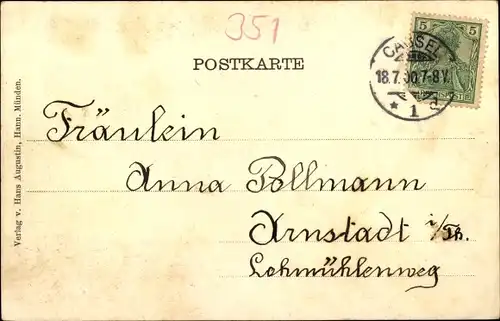 351
5 5
CASSEL
18.7.00.7-8V.
* 1
POSTKARTE
Fräulein
Anna Pollmann
Arnstadt i/Th.
Lohmühlenweg
Verlag v. Hans Augustin, Hann. Münden.